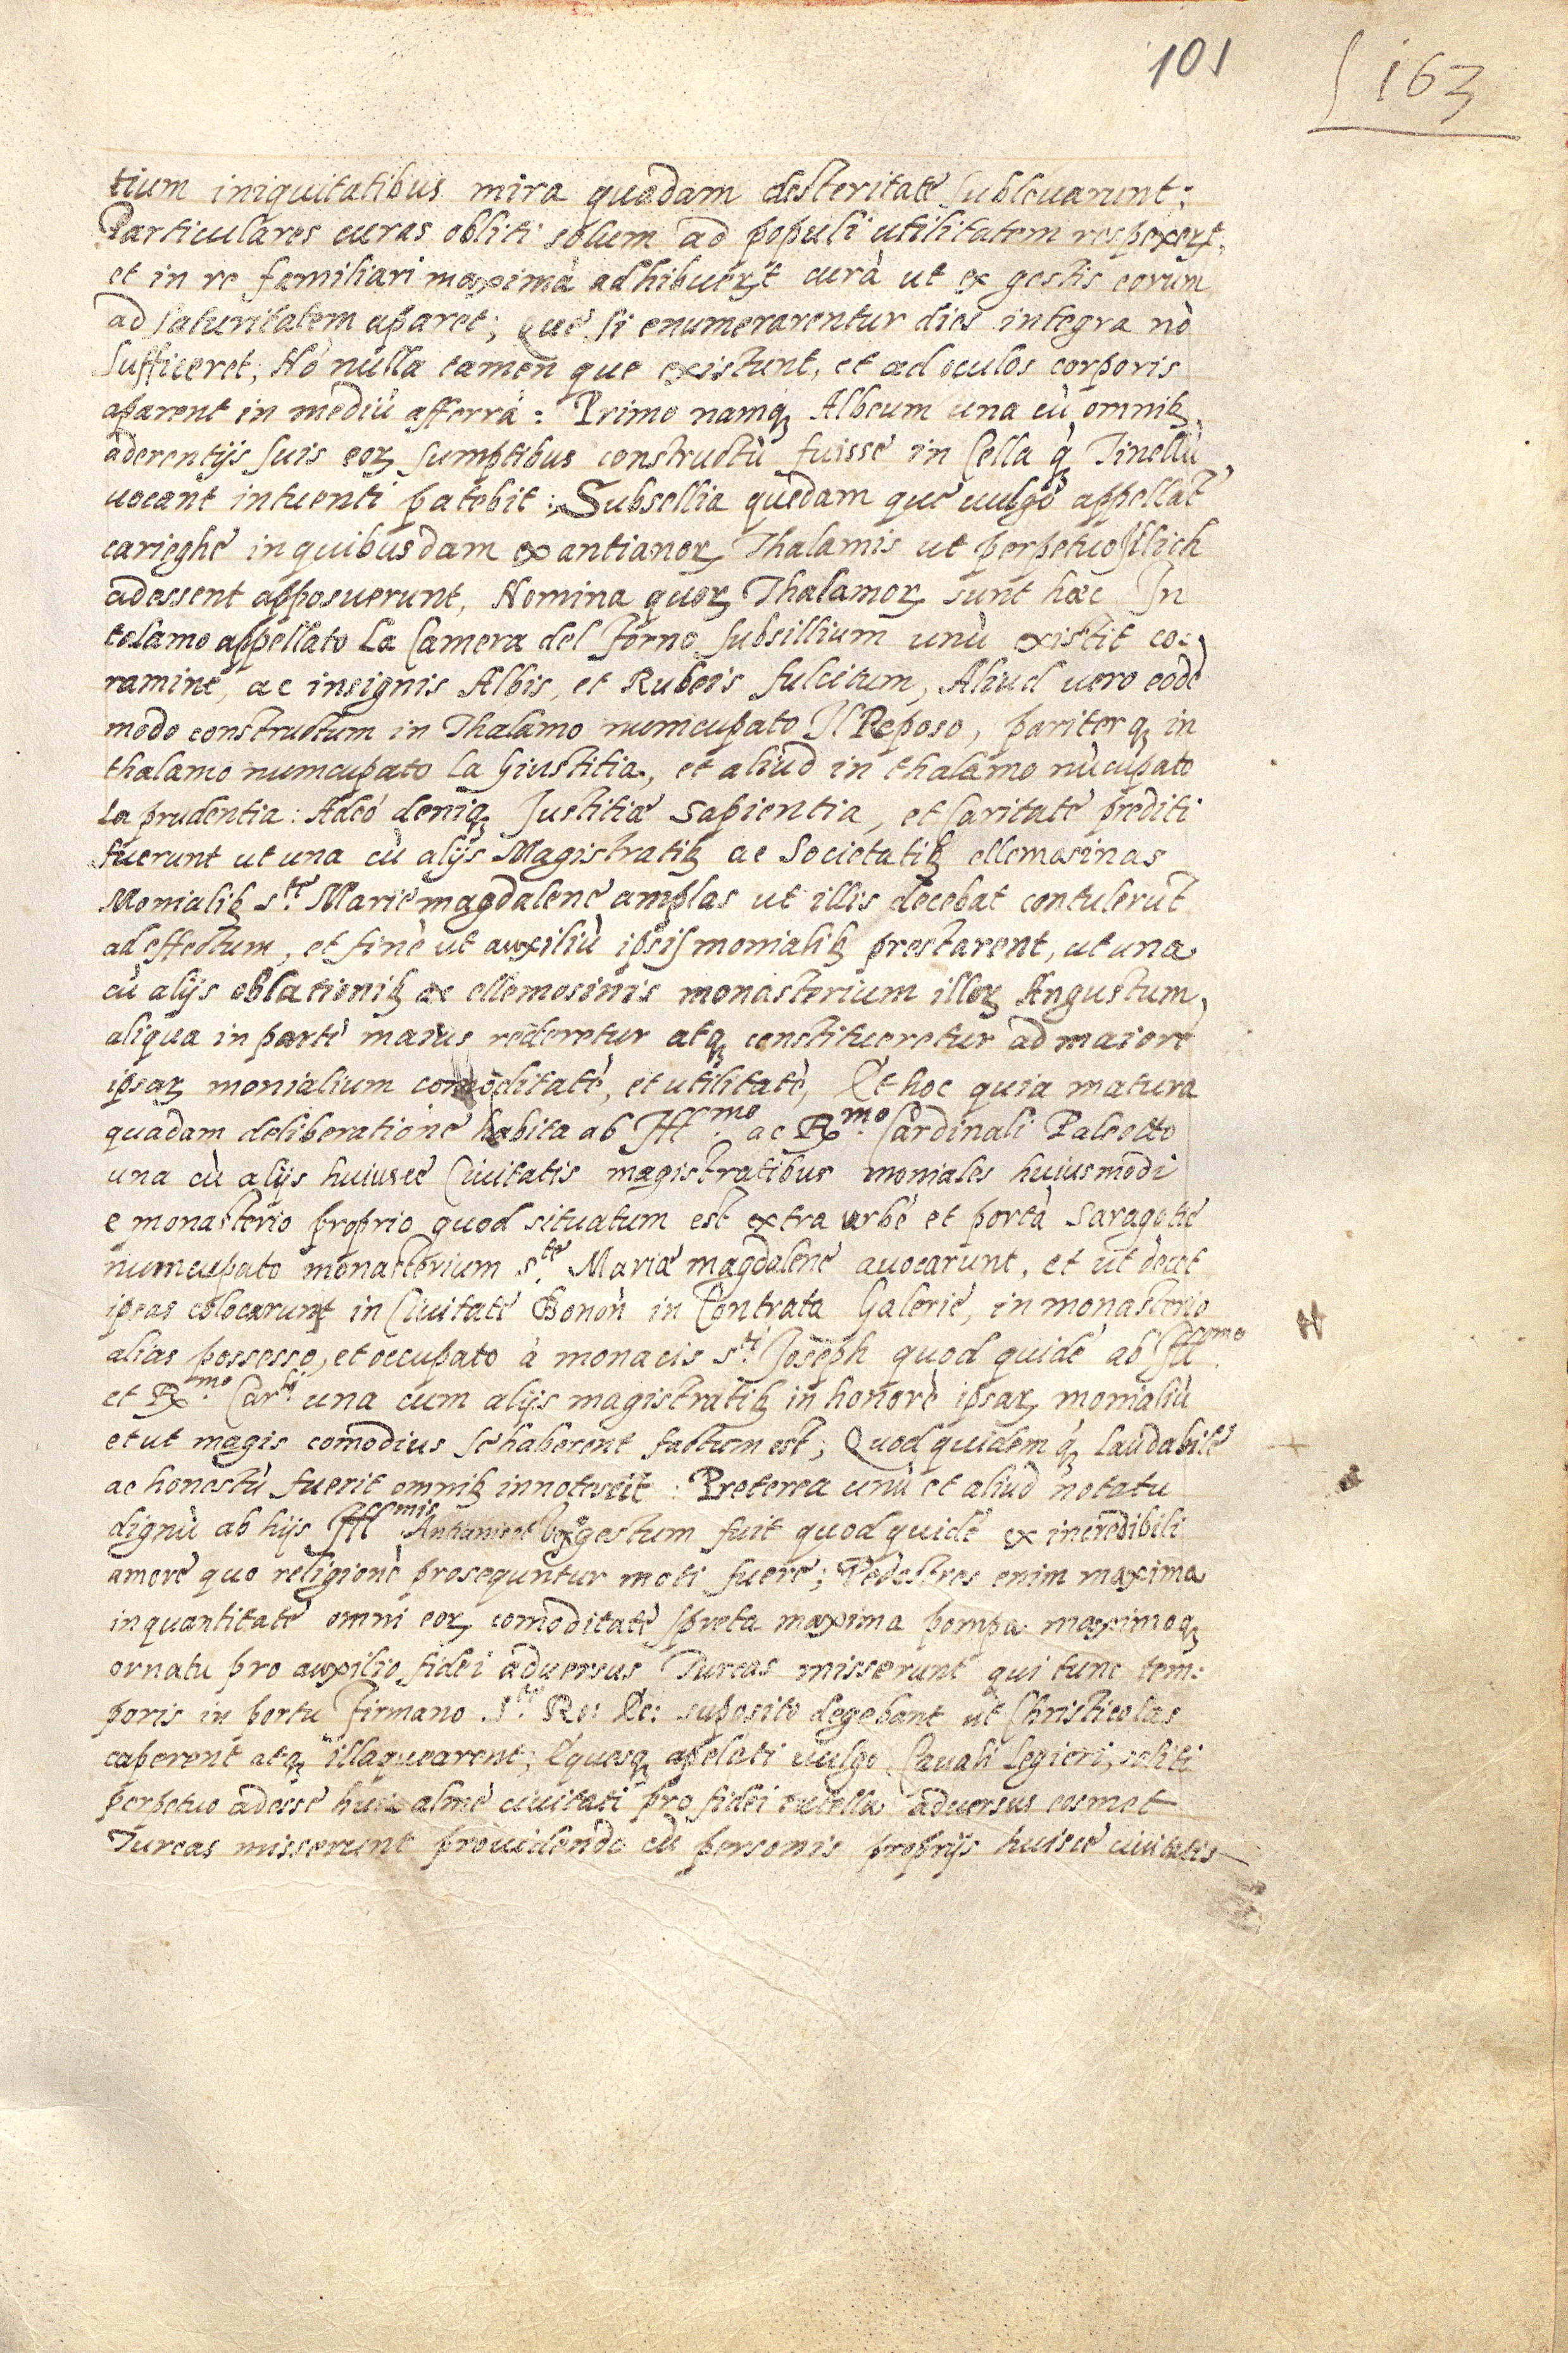 101
163
tium iniquitatibus mira quadam desteritate sublevarunt:
Particulares curas obliti solum ad populi utilitatem respexerȷt,
et in re familiari maximà adhibuerȷt curà ut ex gestis eorum
ad saturitatem aparet; Que si enumerarentur dies integra nò
sufficeret, Nò nulla tamen que existunt, et ad oculos corporis
aparent in mediù afferrà: Primo namqꝫ Albeum una cù omnibꝫ
aderentijs suis eoꝝ sumptibus constructù fuisse in Cella q̀ Tinellù
uocant intuenti patebit: Subsellia quedam que uulgo appellàt
carieghe in quibusdam ex antianoꝝ Thalamis ut perpetuo Illich
adessent apposuerunt, Nomina quoꝝ Thalamoꝝ sunt hæc In
tolamo appellato La Camera del Forno subsillium unù existit co:
ramine, ac insignis Albis, et Rubeis fulcitum, Aliud uero eodè
modo constructum in Thalamo numcupato Il Reposo, pariterqꝫ in
thalamo numcupato La Giustitia, et aliud in thalamo nùcupato
La prudentia: Adeò deniqꝫ Justitiæ Sapientia, et Caritate prediti
fuerunt ut una cù alijs Magistratibꝫ ac Societatibꝫ ellemosinas
Monialibꝫ s.te Marie magdalene amplas ut illis decebat contulerùt
ad effectum, et finè ut auxiliù ipsis monialibꝫ prestarent, ut una
cù alijs oblationibꝫ ac ellemosinis monasterium illoꝝ Angustum
aliqua in parte maius rederetur atqꝫ constitueretur ad maiorè
ipsaꝝ monialium comoditatè, et utilitatè, Et hoc quia matura
quadam deliberatione habita ab Ill.mo ac R.mo Cardinali Paleotto
una cù alijs huiusce Ciuitatis magistratibus moniales huiusmodi
e monasterio proprio quod situatum est extra urbè et portà Saragotie
numcupato monasterium s.te Mariæ magdalene auocarunt, et ut decet
ipsas colocarunt in Ciuitate Bonoñ in Contrata Galerie, in monasterio
alias possesso, et occupato à monacis s.ti Joseph quod quidè ab Ill.mo
et R.mo Car.li una cum alijs magistratibꝫ in honorè ipsaꝝ monialiù
et ut magis comodius se haberent factum est; Quod quidem qꝫ laudabile
ac honestù fuerit omnibꝫ innotescit: Preterea unù et aliud notatu
dignù ab hijs Ill.mis Antianis et gestum fuit quod quidè ex incredibili
amore quo religionè prosequntur moti fuere; Pedestres enim maxima
in quantitate omni eoꝝ comoditate spreta maxima pompa maximoqꝫ
ornatu pro auxilio fidei aduersus Turcas misserunt qui tunc tem:
poris in portu Firmano S.te Ro: Ec: suposito degebant ut Christicolas
caperent atqꝫ illaquearent; Equesqꝫ apelati uulgo Cauali Legieri, soliti
perpetuo adesse huic alme ciuitati pro fidei tutella aduersus eosmet
Turcas misserunt prouidendo cù personis proprijs huisce ciuitatis